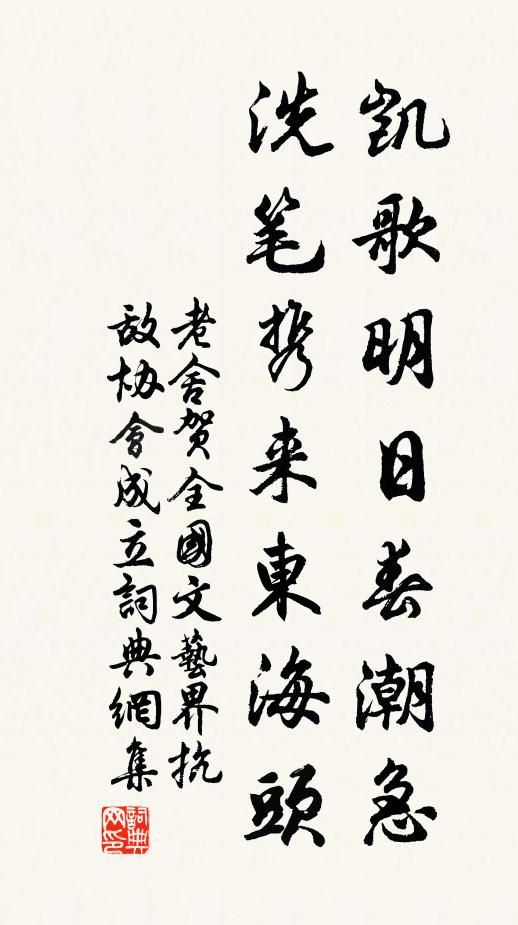 凯歌明日春潮急
洗笔携来東海頭
老舍贺全國文藝界抗
敌协會成立詞典網集
詞典
网印